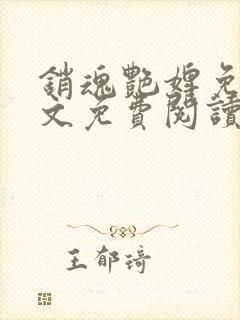 銷魂艷婢免
文免費閱讀
王郁琦